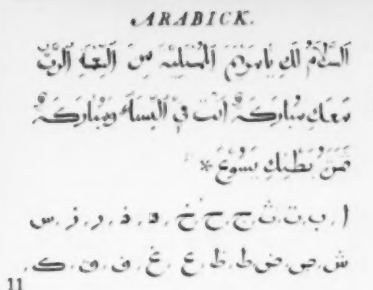 ARABICK.
السلام لك يا مريم الممتلئة من النعمة الرب
معك مباركة انت في النساء ومباركة
ثمرة بطنك يسوع *
ا . ب . ت . ث . ج . ح . خ . د . ذ . ر . ز . س
ش . ص . ض . ط . ظ . ع . غ . ف . ق . ك .
11